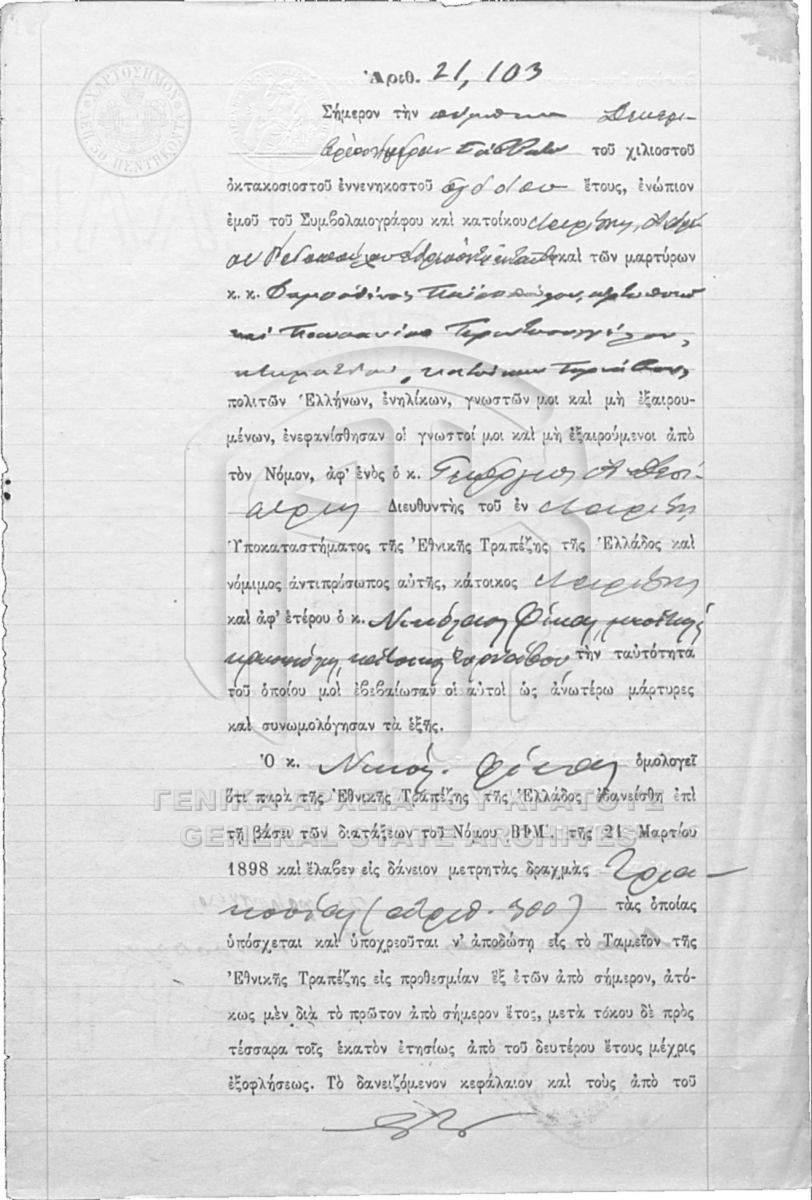 Ἀριθ. 21,103
Σήμερον τὴν πέμπτην Δεκεμ-
βρίου ἡμέραν Σάββατον τοῦ χιλιοστοῦ
ὀκτακοσιοστοῦ ἐννενηκοστοῦ ὀγδόου ἔτους, ἐνώπιον
ἐμοῦ τοῦ Συμβολαιογράφου καὶ κατοίκου Λαρίσης
καὶ τῶν μαρτύρων
κ. κ.
καὶ
κτηματίου, κατοίκων Τυρνάβου,
πολιτῶν Ἑλλήνων, ἐνηλίκων, γνωστῶν μοι καὶ μὴ ἐξαιρου-
μένων, ἐνεφανίσθησαν οἱ γνωστοί μοι καὶ μὴ ἐξαιρούμενοι ἀπὸ
τὸν Νόμον, ἀφ' ἑνὸς ὁ κ. Γεώργιος Α.
Διευθυντὴς τοῦ ἐν Λαρίσης
Ὑποκαταστήματος τῆς Ἐθνικῆς Τραπέζης τῆς Ἑλλάδος καὶ
νόμιμος ἀντιπρόσωπος αὐτῆς, κάτοικος Λαρίσης
καὶ ἀφ' ἑτέρου ὁ κ. Νικόλαος Φίκας,
κάτοικος Τυρνάβου τὴν ταὐτότητα
τοῦ ὁποίου μοὶ ἐβεβαίωσαν οἱ αὐτοὶ ὡς ἀνωτέρω μάρτυρες
καὶ συνωμολόγησαν τὰ ἑξῆς.
Ὁ κ. Νικόλ. Φίκας ὁμολογεῖ
ὅτι παρὰ τῆς Ἐθνικῆς Τραπέζης τῆς Ἑλλάδος ἐδανείσθη ἐπὶ
ΓΕΝΙΚΑ ΑΡΧΕΙΑ ΤΟΥ ΚΡΑΤΟΥΣ
τῇ βάσει τῶν διατάξεων τοῦ Νόμου ΒΦΜ'. τῆς 21 Μαρτίου
GENERAL STATE ARCHIVES
1898 καὶ ἔλαβεν εἰς δάνειον μετρητὰς δραχμὰς Τρια-
κοσίας (ἀριθ. 300) τὰς ὁποίας
ὑπόσχεται καὶ ὑποχρεοῦται ν' ἀποδώσῃ εἰς τὸ Ταμεῖον τῆς
Ἐθνικῆς Τραπέζης εἰς προθεσμίαν ἓξ ἐτῶν ἀπὸ σήμερον, ἀτό-
κως μὲν διὰ τὸ πρῶτον ἀπὸ σήμερον ἔτος, μετὰ τόκου δὲ πρὸς
τέσσαρα τοῖς ἑκατὸν ἐτησίως ἀπὸ τοῦ δευτέρου ἔτους μέχρις
ἐξοφλήσεως. Τὸ δανειζόμενον κεφάλαιον καὶ τοὺς ἀπὸ τοῦ